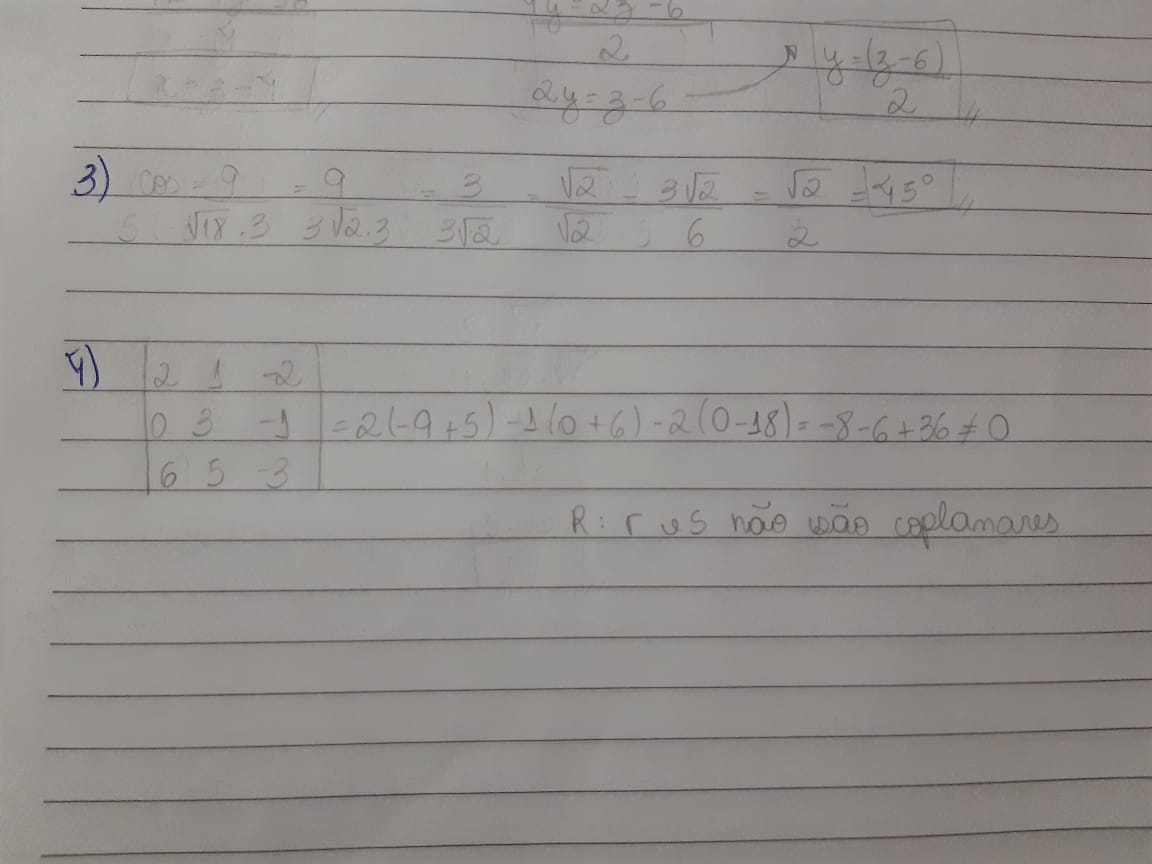 4y = 2z - 6
2
x = z - 4
2y = z - 6
y = (z-6)
2
3) cos = 9/√18.3 = 9/3√2.3 = 3/3√2 = √2/√2 = 3√2/6 = √2/2 = 45°
4) |2 1 -2|
|0 3 -1| = 2(-9+5) -1(0+6) -2(0-18) = -8-6+36 ≠ 0
|6 5 -3|
R: r e s não são coplanares